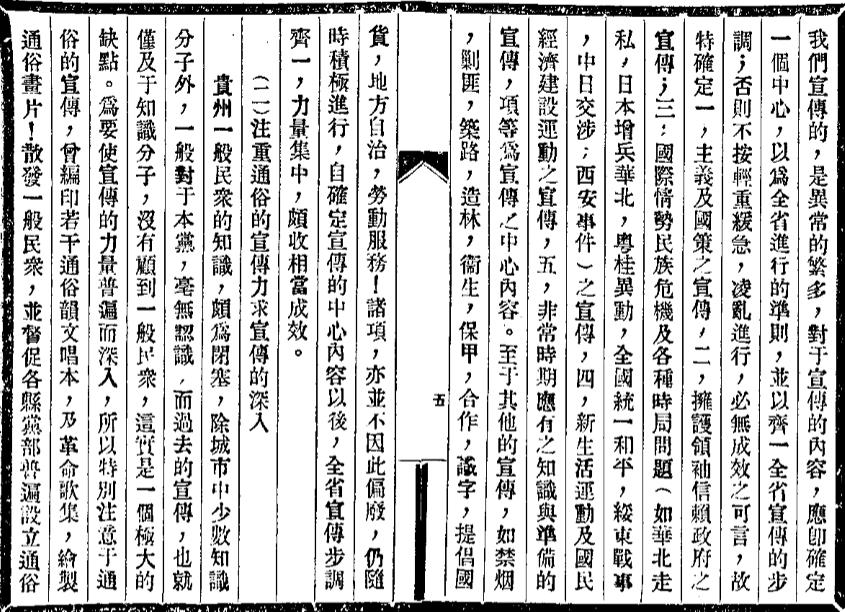 我們宣傳的，是異常的繁多，對于宣傳的內容，應卽確定
一個中心，以爲全省進行的準則，並以齊一全省宣傳的步
調；否則不按輕重緩急，凌亂進行，必無成效之可言，故
特確定一，主義及國策之宣傳，二，擁護領袖信賴政府之
宣傳；三：國際情勢民族危機及各種時局問題（如華北走
私，日本增兵華北，粵桂異動，全國統一和平，綏東戰事
，中日交涉；西安事件）之宣傳，四，新生活運動及國民
經濟建設運動之宣傳，五，非常時期應有之知識與準備的
宣傳，項等爲宣傳之中心內容。至于其他的宣傳，如禁烟
，剿匪，築路，造林，衞生，保甲，合作，識字，提倡國
五
貨，地方自治，勞動服務！諸項，亦並不因此偏廢，仍隨
時積極進行，自確定宣傳的中心內容以後，全省宣傳步調
齊一，力量集中，頗收相當成效。
（二）注重通俗的宣傳力求宣傳的深入
貴州一般民衆的知識，頗爲閉塞，除城市中少數知識
分子外，一般對于本黨，毫無認識，而過去的宣傳，也就
僅及于知識分子，沒有顧到一般民衆，這實是一個極大的
缺點。爲要使宣傳的力量普遍而深入，所以特別注意于通
俗的宣傳，曾編印若干通俗韻文唱本，及革命歌集，繪製
通俗畫片！散發一般民衆，並督促各縣黨部普遍設立通俗